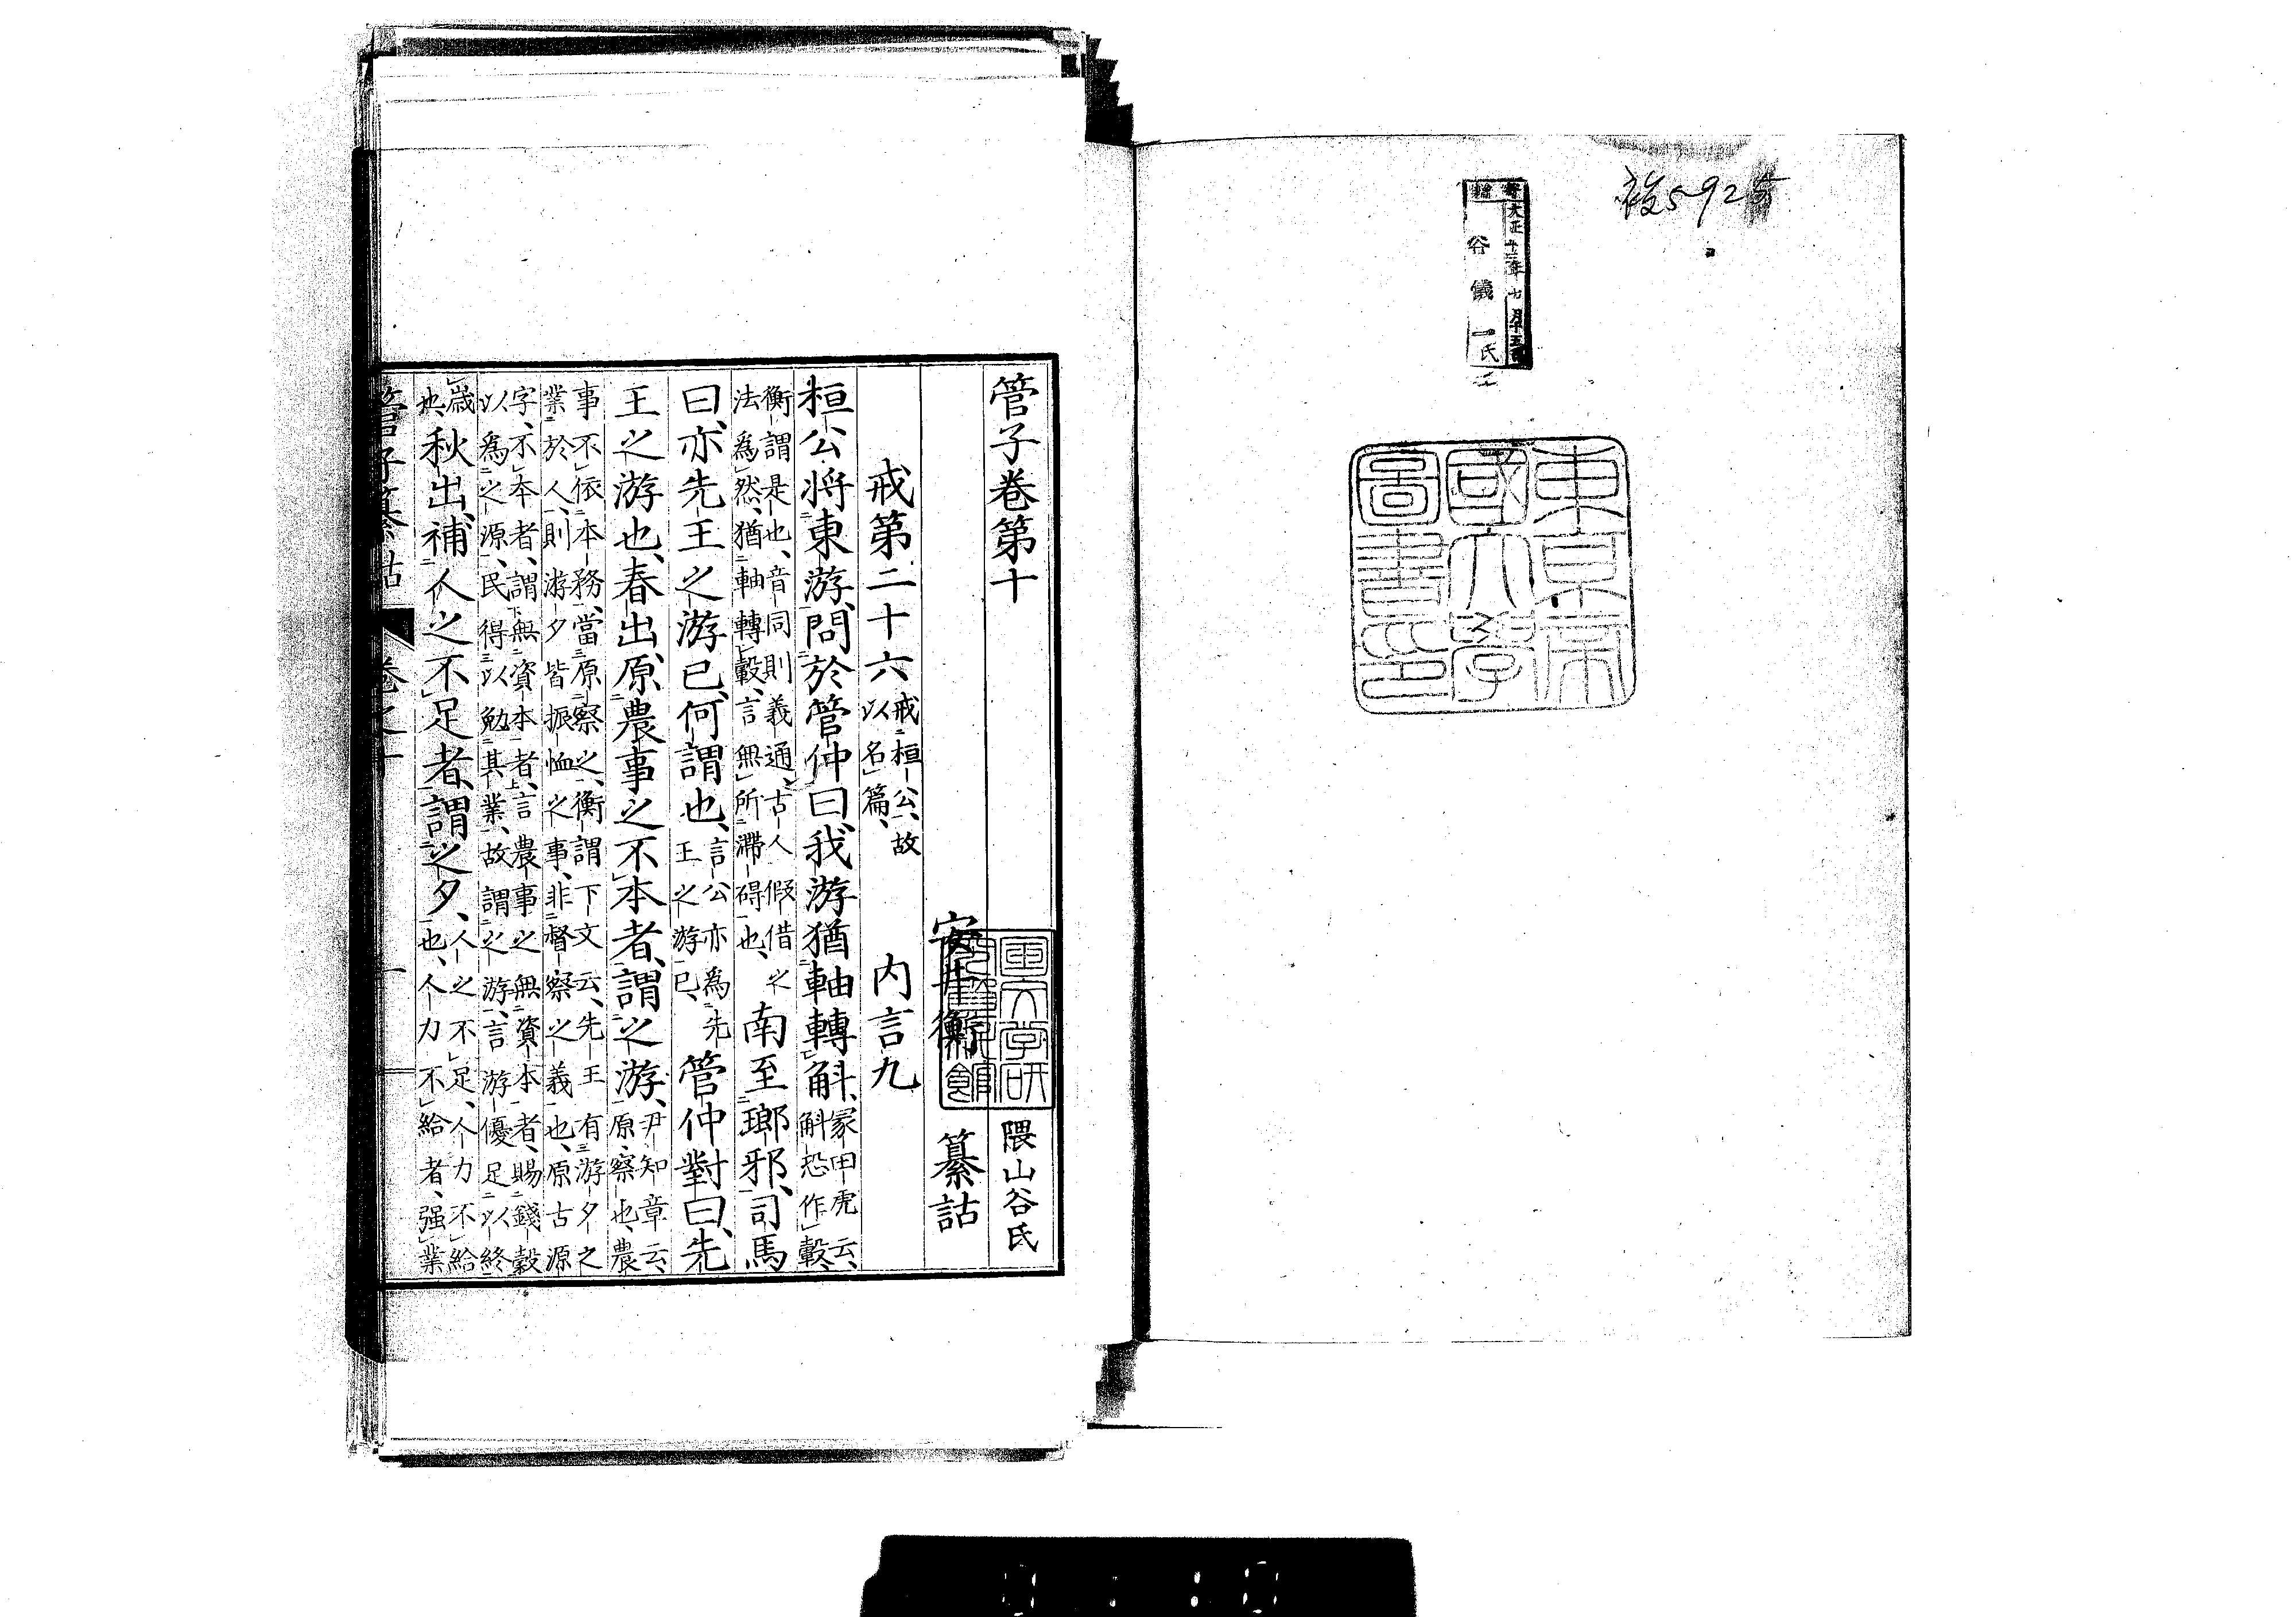 複592
寄贈
大正十三年七月十五日
谷儀一氏
東京帝
國大學
圖書印
管子卷第十
隈山谷氏
安井衡 纂詁
戒第二十六 戒桓公、故以名篇、 内言九
桓公將東游、問於管仲曰、我游猶軸轉斛、冢田虎云、斛恐作轂、
衡謂是也、音同則義通、古人假借之法爲然、猶軸轉轂、言無所滯碍也、南至瑯邪、司馬
曰、亦先王之游已、何謂也、言公亦爲先王之游已、管仲對曰、先
王之游也、春出、原農事之不本者、謂之游、尹知章云、原察也、農
事不依本務、當原察之、衡謂下文云、先王有游夕之業於人、則游夕皆振恤之事、非督察之義也、原古源
字、不本者、謂無資本者、言農事之無資本者、賜錢穀以爲之源、民得以勉其業、故謂之游、言游優足以終
歲也、秋出、補人之不足者、謂之夕、人之不足、人力不給也、人力不給者、强業
管子纂詁 卷之十 一